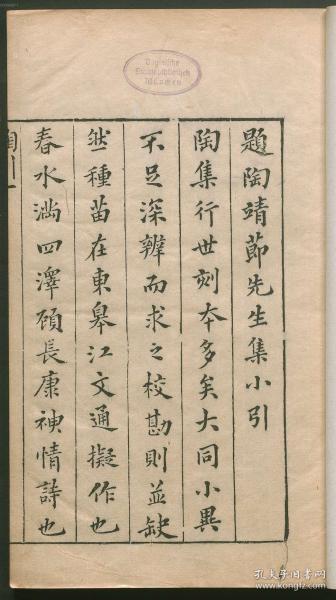 題陶靖節先生集小引
陶集行世刻本多矣大同小異
不足深辨而求之校勘則並缺
然種苗在東皋江文通擬作也
春水滿四澤顧長康神情詩也
陶引
一
Bayerische
Staatsbibliothek
München
孔夫子旧书网